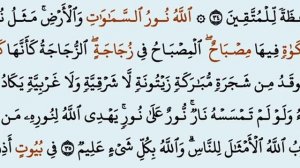 ـظَةً لِّلْمُتَّقِينَ ٣٤ ۞ ٱللَّهُ نُورُ ٱلسَّمَٰوَٰتِ وَٱلْأَرْضِ ۚ مَثَلُ نُـ
ـكَوٰةٍ فِيهَا مِصْبَاحٌ ۖ ٱلْمِصْبَاحُ فِى زُجَاجَةٍ ۖ ٱلزُّجَاجَةُ كَأَنَّهَا كَـ
ـقَدُ مِن شَجَرَةٍ مُّبَٰرَكَةٍ زَيْتُونَةٍ لَّا شَرْقِيَّةٍ وَلَا غَرْبِيَّةٍ يَكَادُ
وَلَوْ لَمْ تَمْسَسْهُ نَارٌ ۚ نُّورٌ عَلَىٰ نُورٍ ۗ يَهْدِى ٱللَّهُ لِنُورِهِۦ مَن
ـبُ ٱللَّهُ ٱلْأَمْثَٰلَ لِلنَّاسِ ۗ وَٱللَّهُ بِكُلِّ شَىْءٍ عَلِيمٌ ٣٥ فِى بُيُوتٍ أَذِ